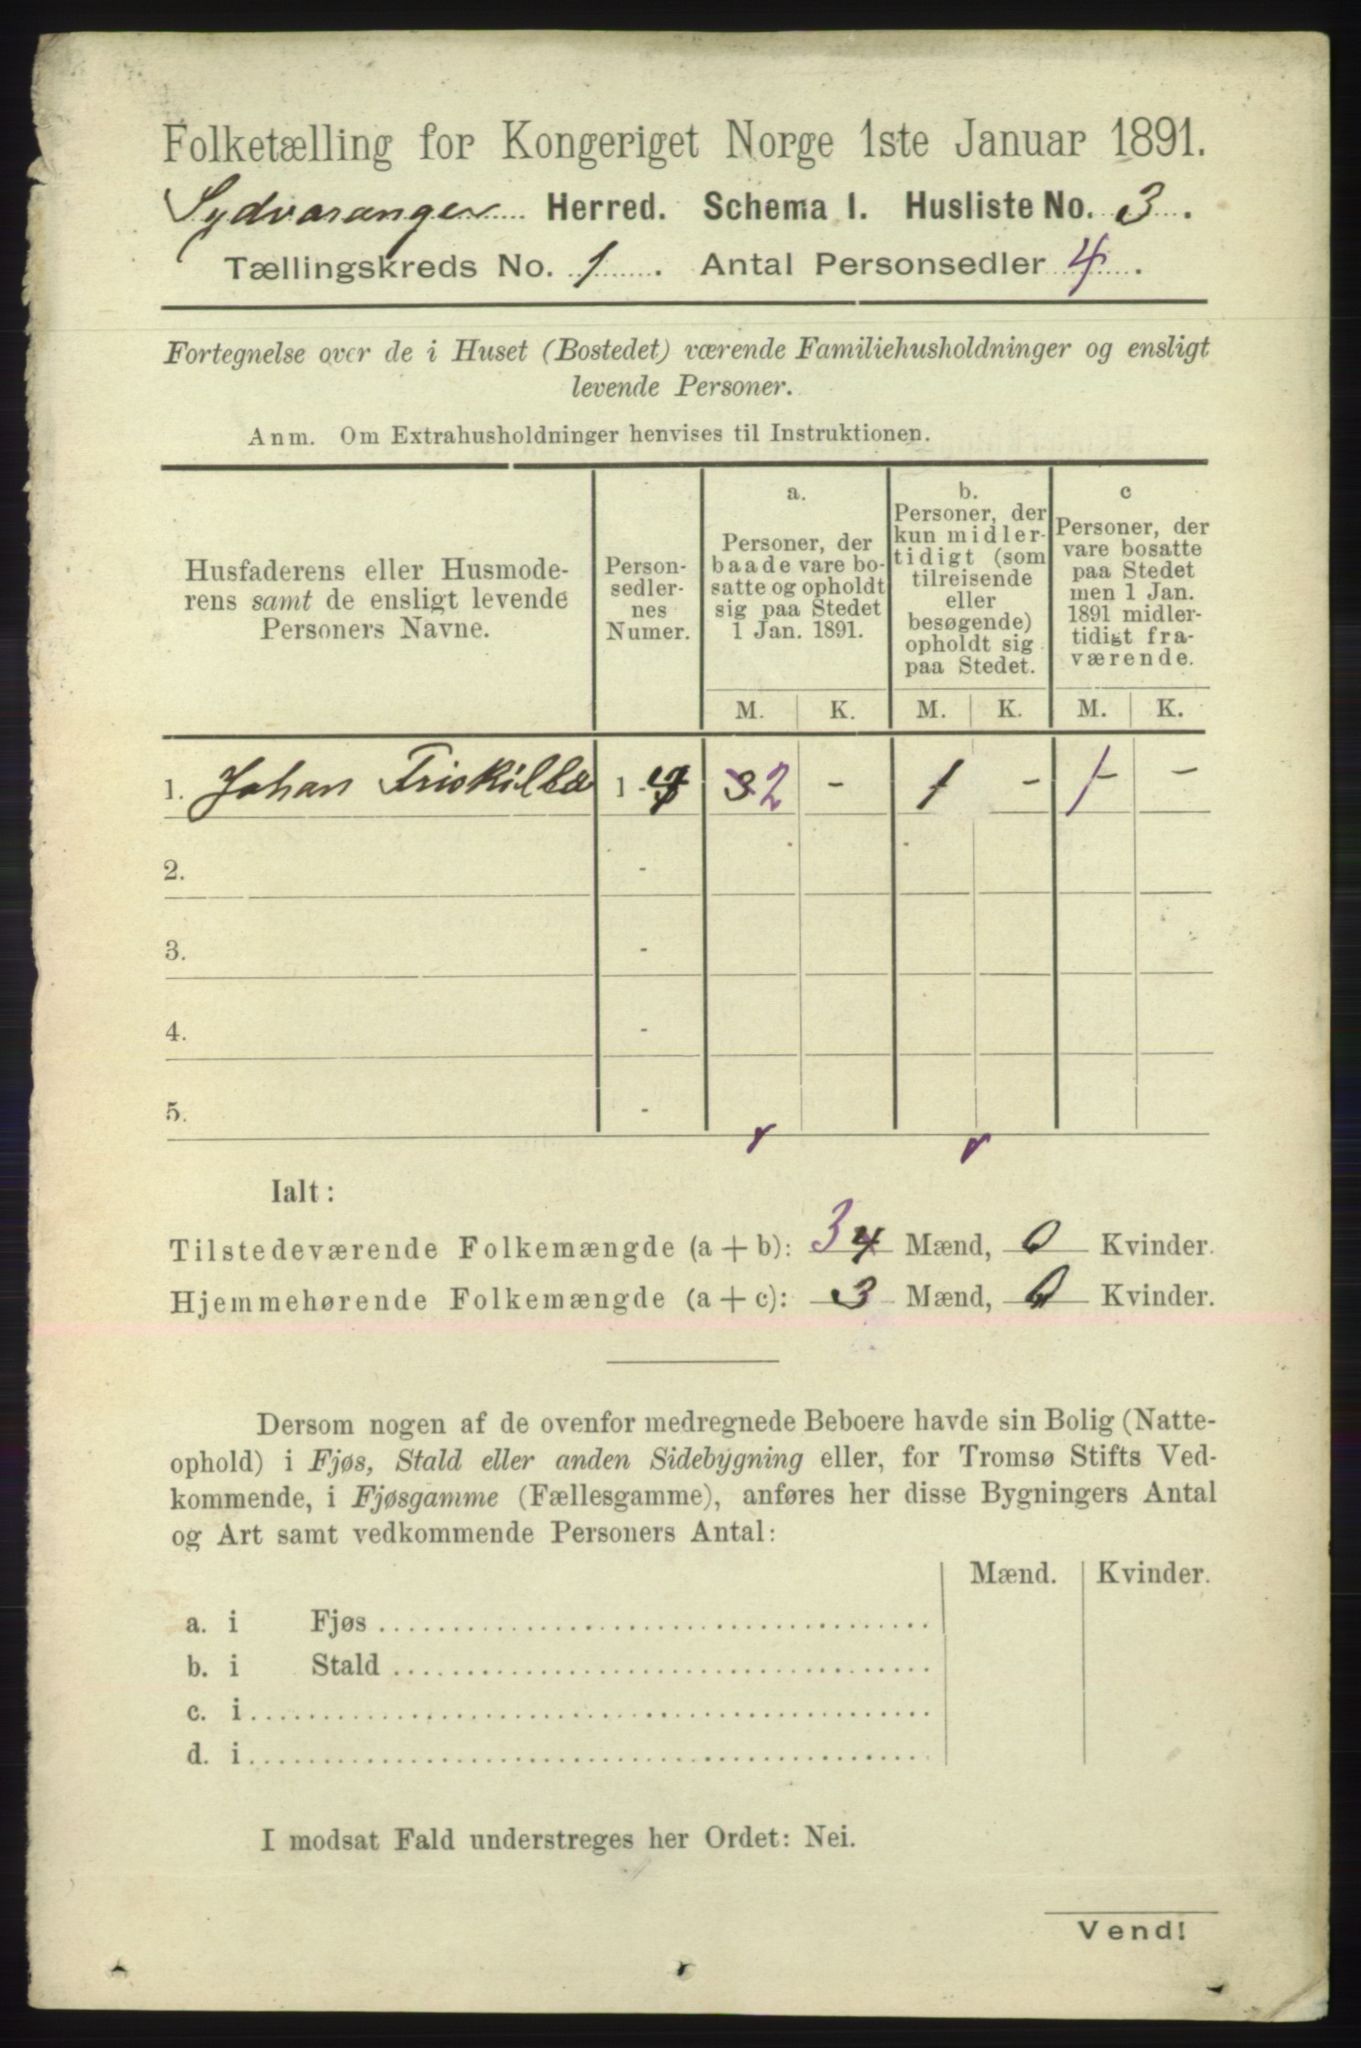 Folketælling for Kongeriget Norge 1ste Januar 1891.
Sydvaranger Herred. Schema I. Husliste No. 3.
Tællingskreds No. 1. Antal Personsedler 4.
Fortegnelse over de i Huset (Bostedet) værende Familiehusholdninger og ensligt
levende Personer.
Anm. Om Extrahusholdninger henvises til Instruktionen.
Husfaderens eller Husmode-
rens samt de ensligt levende
Personers Navne.
Person-
sedler-
nes
Numer.
a.
Personer, der
baade vare bo-
satte og opholdt
sig paa Stedet
1 Jan. 1891.
b.
Personer, der
kun midler-
tidigt (som
tilreisende
eller
besøgende)
opholdt sig
paa Stedet.
c
Personer, der
vare bosatte
paa Stedet
men 1 Jan.
1891 midler-
tidigt fra-
værende.
M. K. M. K. M. K.
1. Johan 1 - 4 3 2 - 1 - 1 -
2. -
3. -
4. -
5. -
Ialt:
Tilstedeværende Folkemængde (a + b): 3 4 Mænd, 0 Kvinder.
Hjemmehørende Folkemængde (a + c): 3 Mænd, 0 Kvinder.
Dersom nogen af de ovenfor medregnede Beboere havde sin Bolig (Natte-
ophold) i Fjøs, Stald eller anden Sidebygning eller, for Tromsø Stifts Ved-
kommende, i Fjøsgamme (Fællesgamme), anføres her disse Bygningers Antal
og Art samt vedkommende Personers Antal:
Mænd. Kvinder.
a. i Fjøs
b. i Stald
c. i
d. i
I modsat Fald understreges her Ordet: Nei.
Vend!